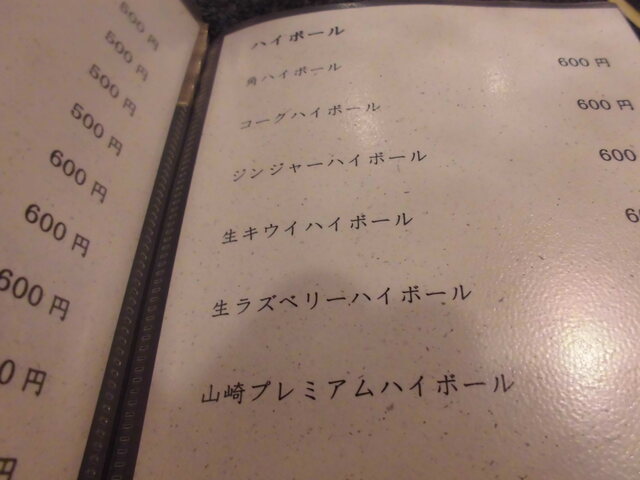 500円
500円
500円
500円
600円
600円
600円
0円
円
ハイボール
角ハイボール 600円
コークハイボール 600円
ジンジャーハイボール 600
生キウイハイボール 6
生ラズベリーハイボール
山崎プレミアムハイボール